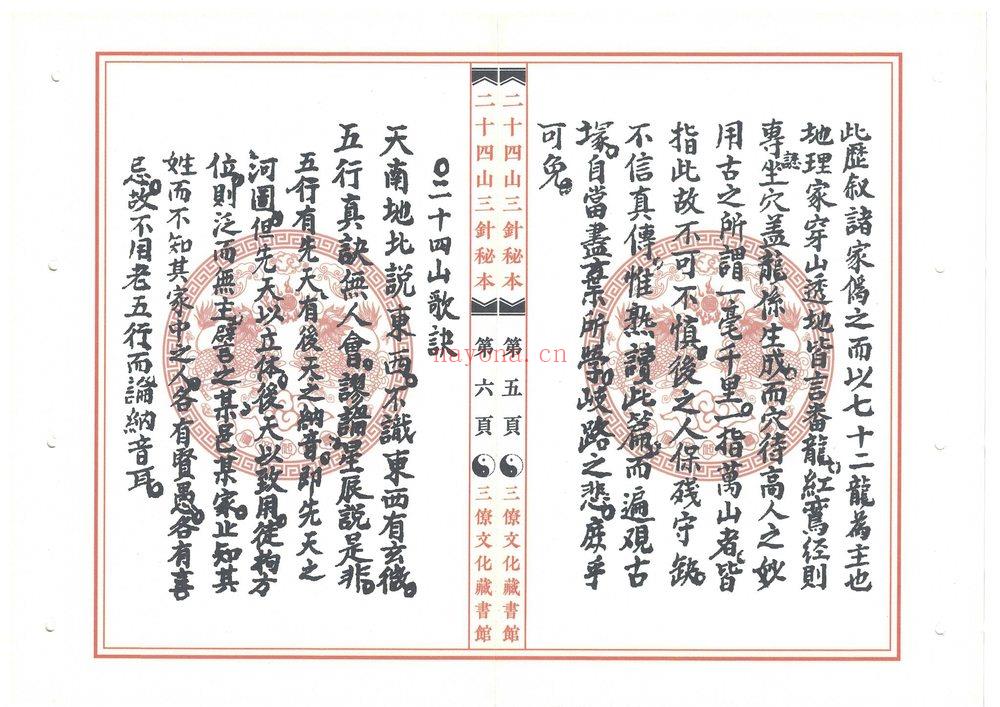 此歷叙諸家偽之而以七十二龍為主也
地理家穿山透地皆言番龍。紅鸞經則
專誌坐穴盖龍係生成。而穴待高人之妙
用古之所謂一毫千里。一指萬山者皆
指此故不可不慎後之人保残守缺。
不信真傳。惟熟讀此篇。而遍观古
塚。自當盡棄所學。岐路之悲。庶乎
可免。
二十四山三針秘本
第五頁
三僚文化藏書館
二十四山三針秘本
第六頁
三僚文化藏書館
○二十四山歌訣
天南地北説東西。不識東西有玄微。
五行真訣無人會。謬論星辰説是非。
五行有先天。有後天之納音。即先天之
河圖。但先天以立体。後天以致用。徒拘方
位。則泛而無主。譬之某邑某家。止知其
姓而不知其家中之人。各有賢愚。各有喜
忌。故不用老五行而論納音耳。
nayona.cn